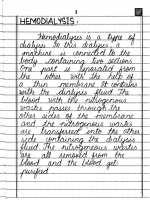 3
HEMODIALYSIS :
Hemodialysis is a type of
dialysis. In this dialysis, a
machine is connected to the
body containing two sections.
One part is separated from
the other with the help of
a thin membrane. It contains
with the dialysis fluid. The
blood with the nitrogenous
wastes passes through the
other sides of the membrane
and the nitrogenous wastes
are transferred into the other
side containing the dialysis
fluid. The nitrogenous wastes
are all removed from the
blood and the blood get
purified.